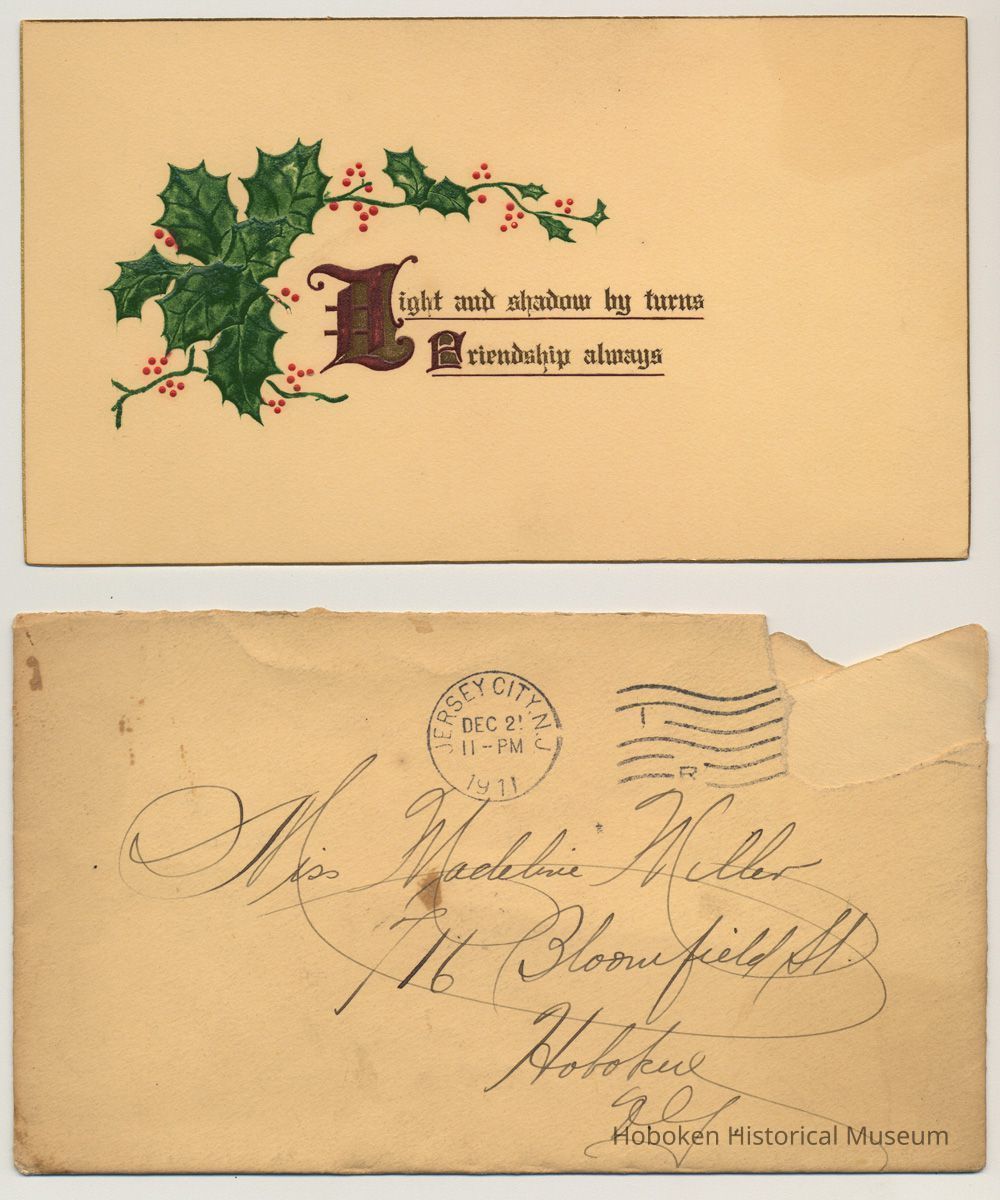 Light and shadow by turns
Friendship always
JERSEY CITY, N.J.
DEC 21
11-PM
1911
1
R
Miss Madeline Miller
716 Bloomfield St.
Hoboken
N.J.
Hoboken Historical Museum